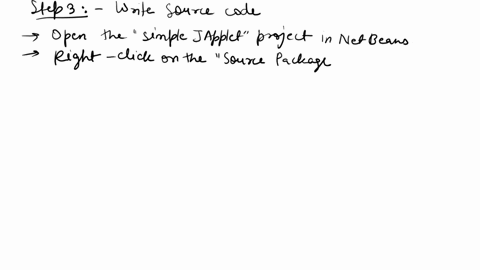 Step 3:- Write source code
→ Open the "simple JApplet" project in NetBeans
→ Right-click on the "Source Package